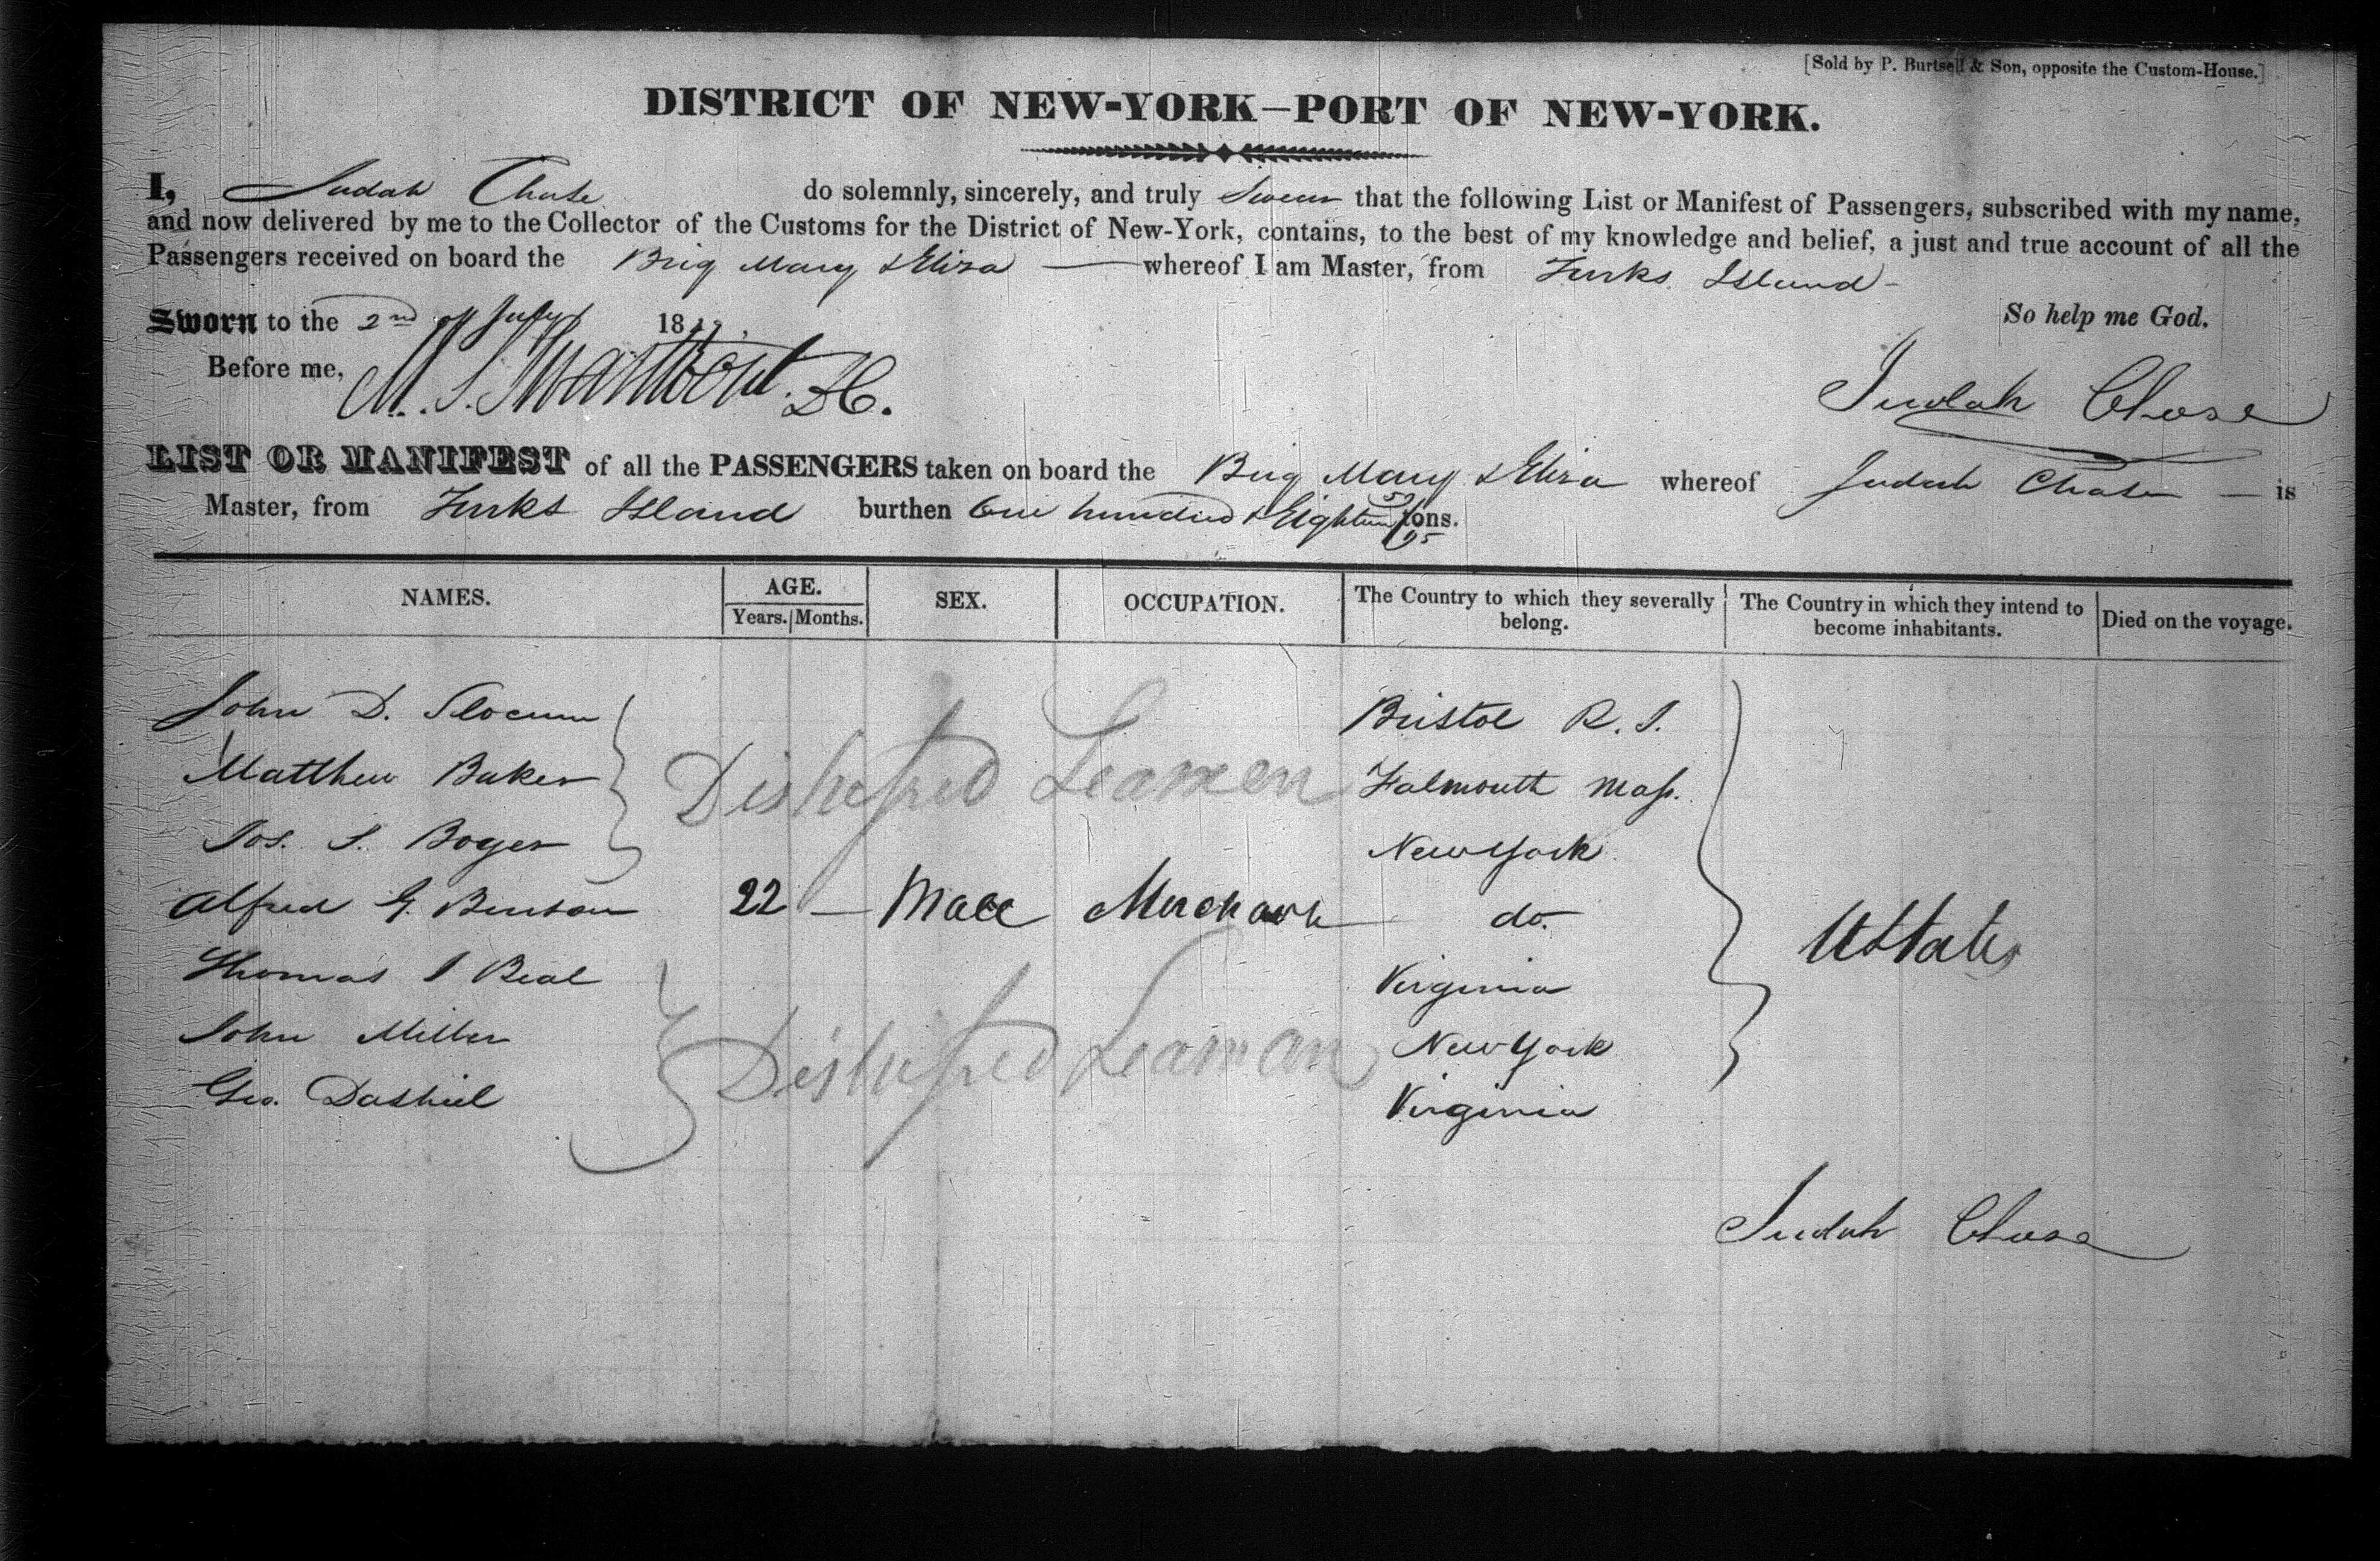 [Sold by P. Burtsell & Son, opposite the Custom-House.]
DISTRICT OF NEW-YORK—PORT OF NEW-YORK.
I, Judah Chase do solemnly, sincerely, and truly Swear that the following List or Manifest of Passengers, subscribed with my name,
and now delivered by me to the Collector of the Customs for the District of New-York, contains, to the best of my knowledge and belief, a just and true account of all the
Passengers received on board the Brig Mary & Eliza whereof I am Master, from Turks Island
Sworn to the 2nd of July 18 So help me God.
Before me, Judah Chase
LIST OR MANIFEST of all the PASSENGERS taken on board the Brig Mary & Eliza whereof Judah Chase is
Master, from Turks Island burthen One hundred & Eighteen tons.
NAMES. AGE. SEX. OCCUPATION. The Country to which they severally belong. The Country in which they intend to become inhabitants. Died on the voyage.
Years. Months.
John D. Slocum Bristol R. I.
Matthew Baker Distressed Seamen Falmouth Mass.
Jos. S. Boger New York
Alfred G. Benson 22 — Male Merchant do. UStates
Thomas J Beal Virginia
John Miller Distressed Seaman New York
Geo. Dashiel Virginia
Judah Chase